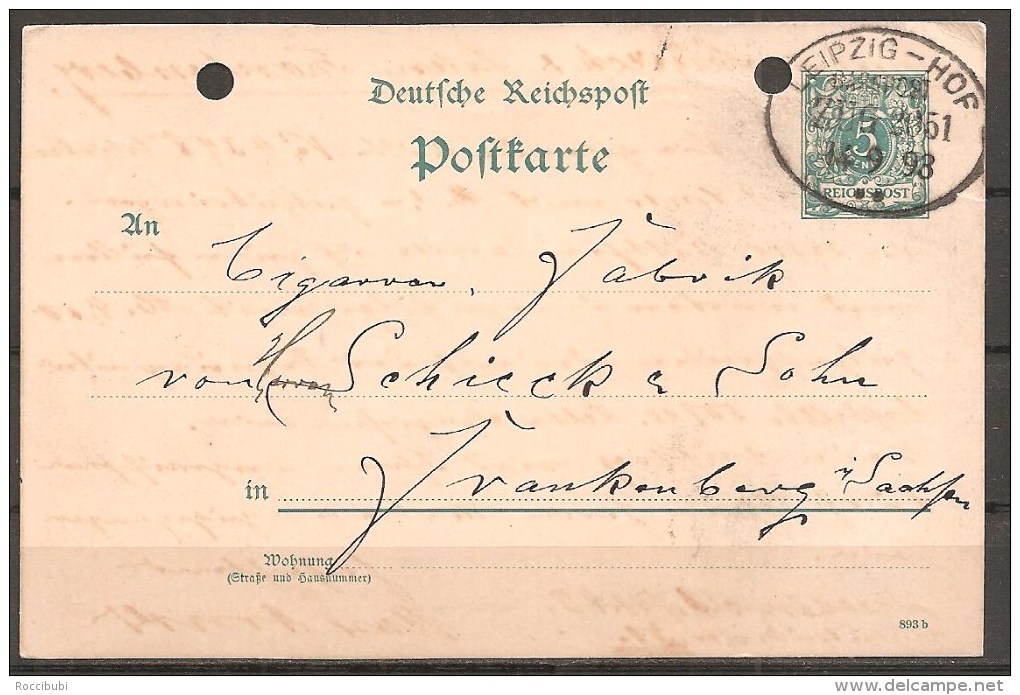 Deutsche Reichspost
Postkarte
LEIPZIG - HOF
5
REICHSPOST
9 98
An Cigarren Fabrik
von Herren Schieck & Sohn
in Frankenberg i/Sachsen
Wohnung
(Straße und Hausnummer)
893 b
Roccibubi
delcampe.net